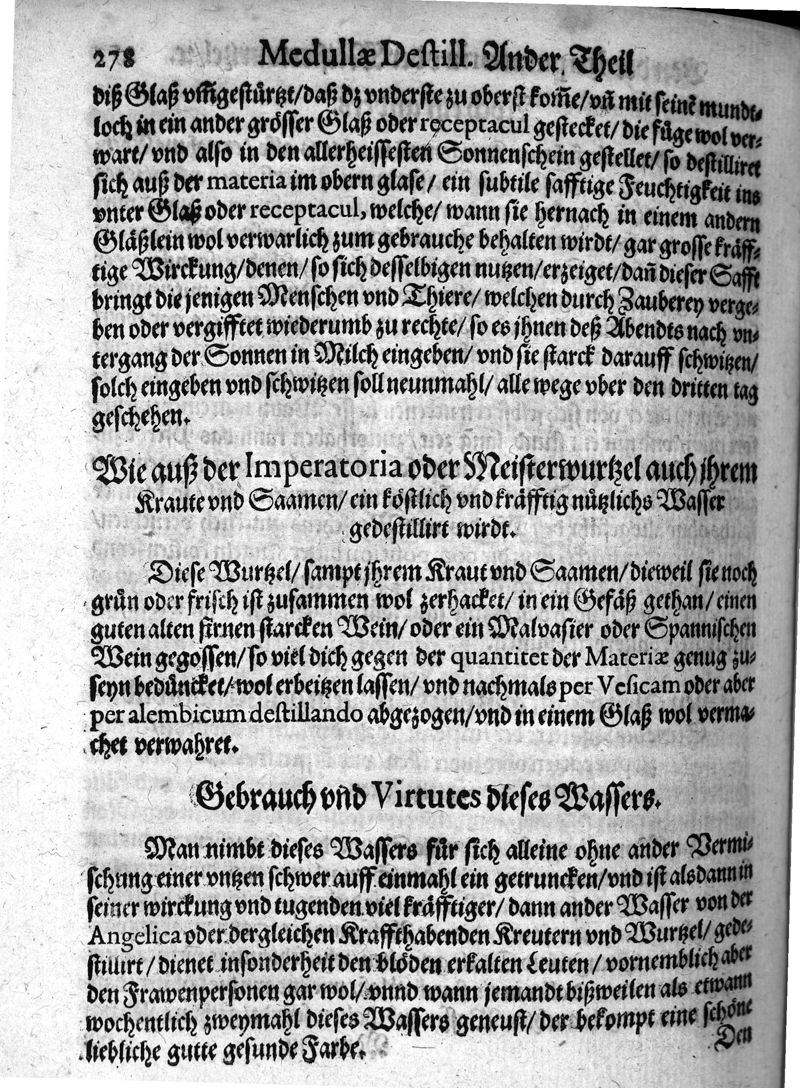 278 Medullæ Destill. Ander Theil
diß Glaß vm̃gestürtzt/daß dz vnderste zu oberst kom̃e/vñ mit seinẽ mundt⸗
loch in ein ander grösser Glaß oder receptacul gestecket/die füge wol ver⸗
wart/ vnd also in den allerheissesten Sonnenschein gestellet/ so destilliret
sich auß der materia im obern glase/ ein subtile safftige Feuchtigkeit ins
vnter Glaß oder receptacul, welche/ wann sie hernach in einem andern
Gläßlein wol verwarlich zum gebrauche behalten wirdt/ gar grosse kräff⸗
tige Wirckung/denen/ so sich desselbigen nutzen/erzeiget/dañ dieser Safft
bringt die jenigen Menschen vnd Thiere/ welchen durch Zauberey verge⸗
ben oder vergifftet wiederumb zu rechte/ so es jhnen deß Abendts nach vn⸗
tergang der Sonnen in Milch eingeben/ vnd sie starck darauff schwitzen/
solch eingeben vnd schwitzen soll neunmahl/ alle wege vber den dritten tag
geschehen.
Wie auß der Imperatoria oder Meisterwurtzel auch jhrem
Kraute vnd Saamen/ ein köstlich vnd kräfftig nützlichs Wasser
gedestillirt wirdt.
Diese Wurtzel/ sampt jhrem Kraut vnd Saamen/ dieweil sie noch
grün oder frisch ist zusammen wol zerhacket/ in ein Gefäß gethan/ einen
guten alten firnen starcken Wein/ oder ein Malvasier oder Spannischen
Wein gegossen/ so viel dich gegen der quantitet der Materiæ genug zu⸗
seyn bedüncket/ wol erbeitzen lassen/ vnd nachmals per Vesicam oder aber
per alembicum destillando abgezogen/vnd in einem Glaß wol verma⸗
chet verwahret.
Gebrauch vnd Virtutes dieses Wassers.
Man nimbt dieses Wassers für sich alleine ohne ander Vermi⸗
schung einer vntzen schwer auff einmahl ein getruncken/vnd ist alsdann in
seiner wirckung vnd tugenden viel kräfftiger/ dann ander Wasser von der
Angelica oder dergleichen Kraffthabenden Kreutern vnd Wurtzel/ gede⸗
stillirt/ dienet insonderheit den blöden erkalten Leuten/ vornemblich aber
den Frawenpersonen gar wol/ vnnd wann jemandt bißweilen als etwann
wochentlich zweymahl dieses Wassers geneust/ der bekompt eine schöne
liebliche gutte gesunde Farbe.
Den